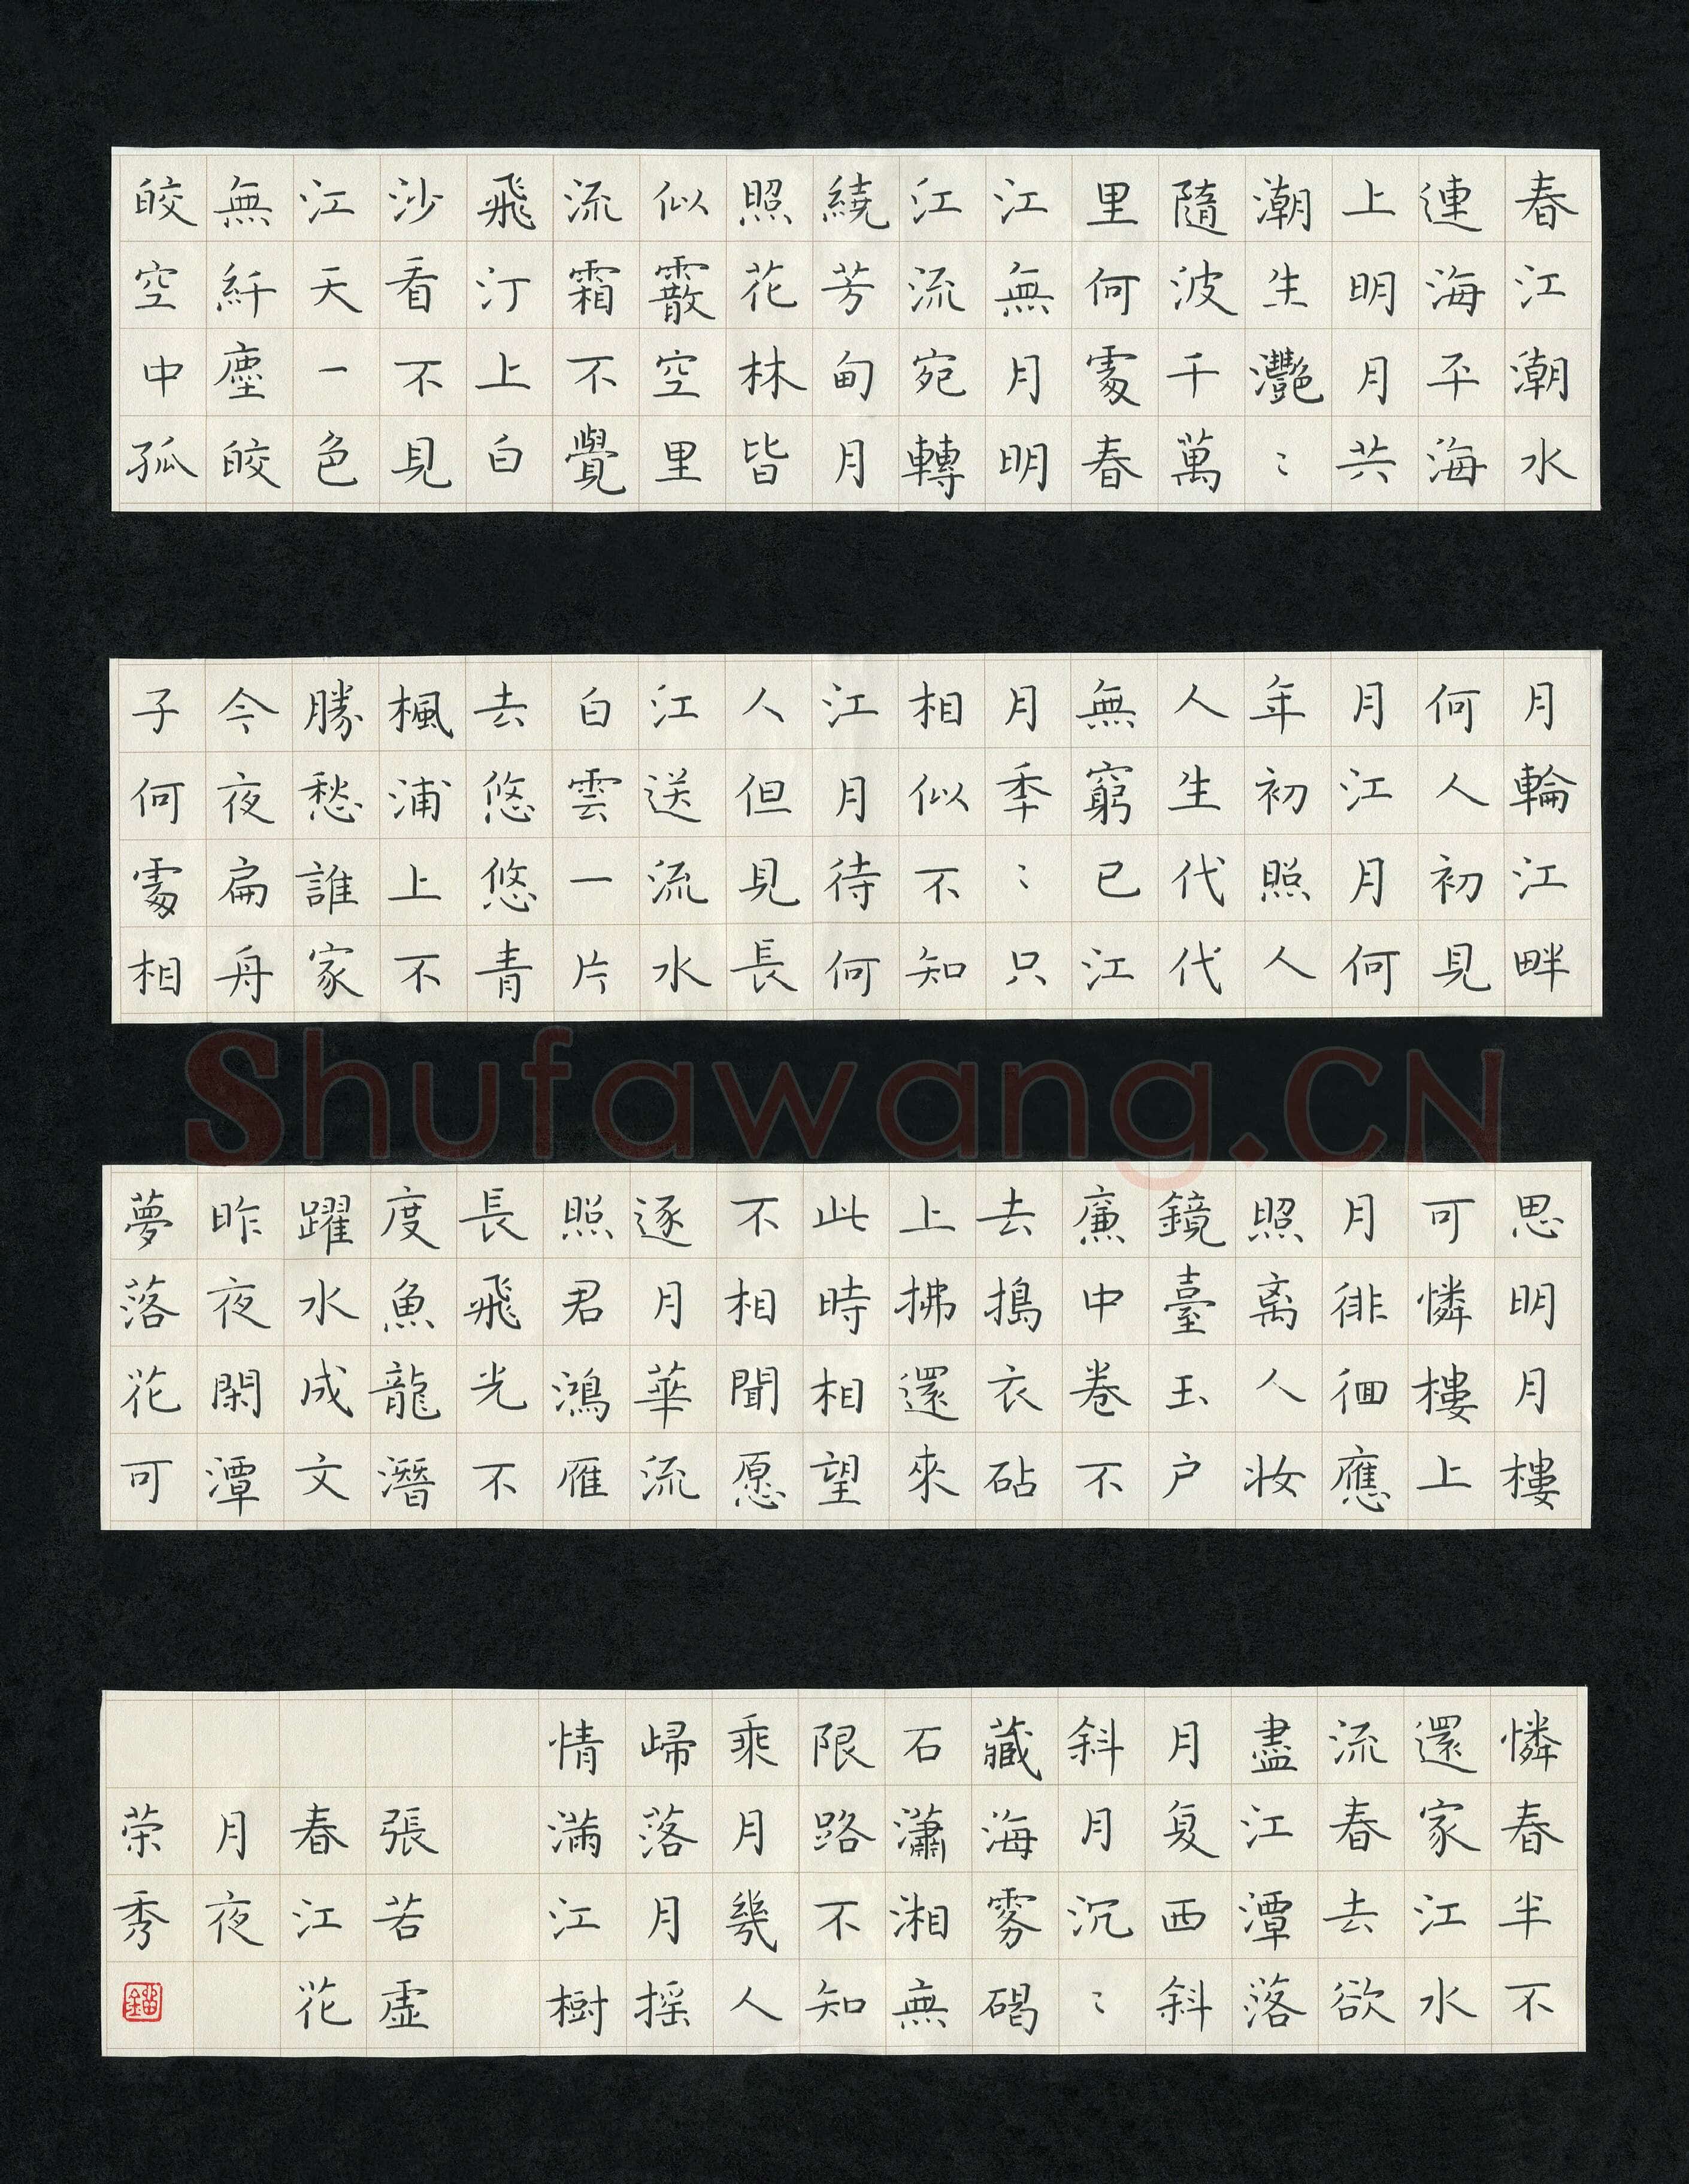 春江潮水
連海平海
上明月共
潮生灧〻
隨波千萬
里何處春
江無月明
江流宛轉
繞芳甸月
照花林皆
似霰空里
流霜不覺
飛汀上白
沙看不見
江天一色
無纤塵皎
皎空中孤
月輪江畔
何人初見
月江月何
年初照人
人生代代
無窮已江
月秊〻只
相似不知
江月待何
人但見長
江送流水
白雲一片
去悠悠青
楓浦上不
勝愁誰家
今夜扁舟
子何處相
思明月樓
可憐樓上
月徘徊應
照离人妆
鏡臺玉户
廉中卷不
去搗衣砧
上拂還來
此時相望
不相聞愿
逐月華流
照君鴻雁
長飛光不
度魚龍潛
躍水成文
昨夜閑潭
夢落花可
憐春半不
還家江水
流春去欲
盡江潭落
月复西斜
斜月沉〻
藏海雾碣
石瀟湘無
限路不知
乘月幾人
歸落月摇
情滿江樹
張若虛
春江花
月夜
荣秀
Shufawang.CN